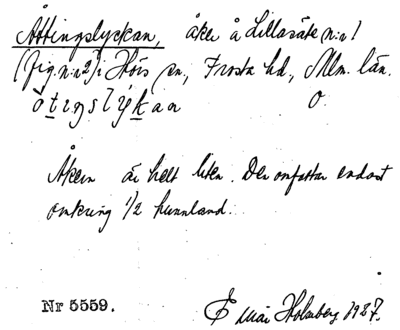 Åttingslyckan, åker å Lillasäte n:r 1
(fig. n:r 2) i Hörs sn, Frosta hd, Mlm. län.
Åkern är helt liten. Den omfattar endast
omkring 1/2 tunnland.
Nr 5559.
E Holmberg 1927.